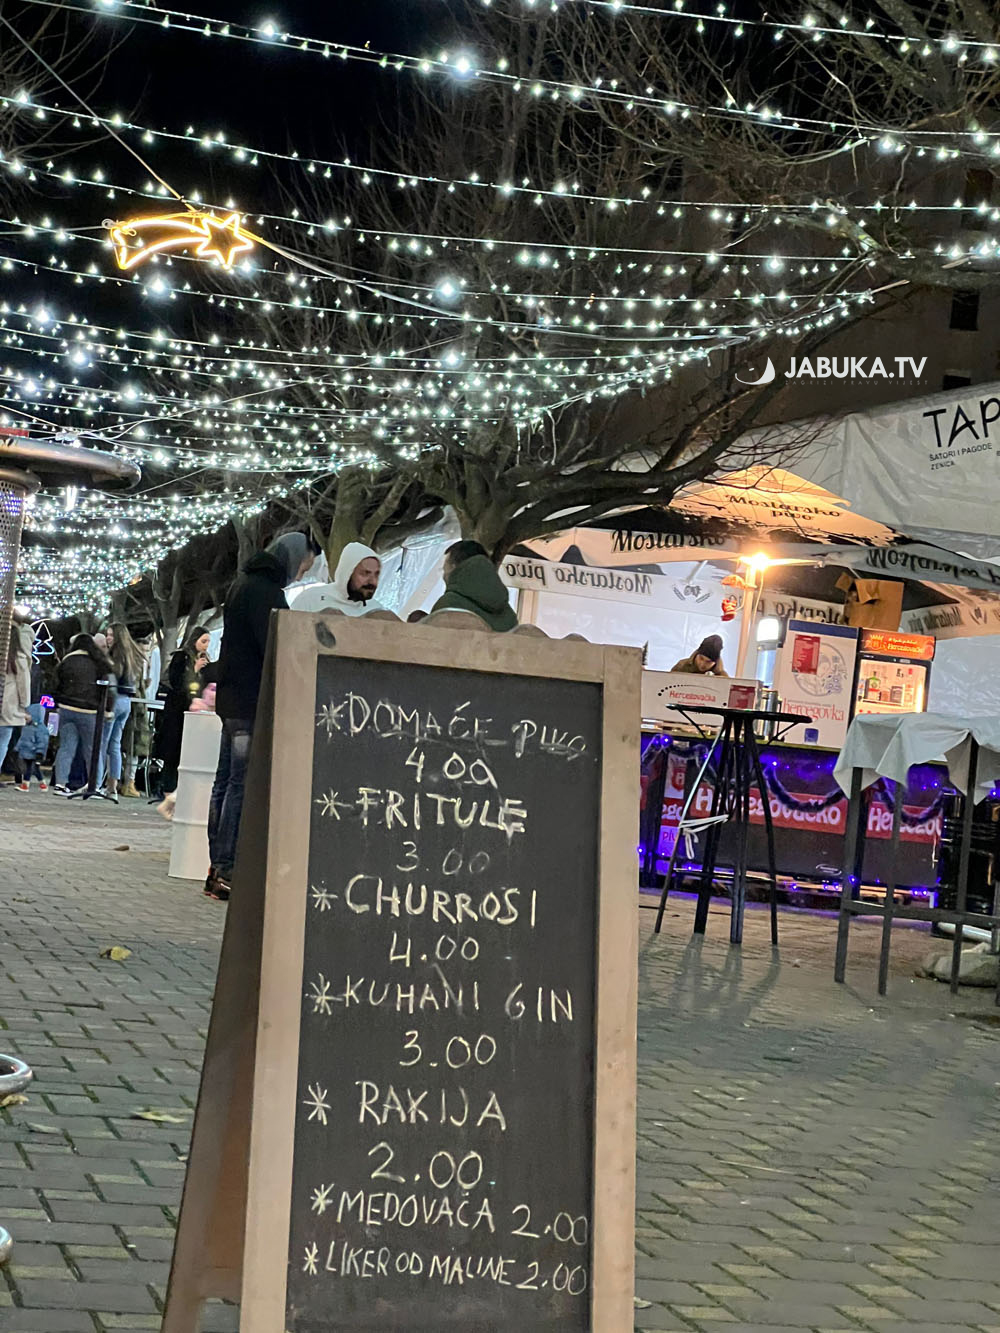 JABUKA.TV
TAP
ŠATORI I PAGODE
ZENICA
Mostarsko
pivo
Mostarsko
Mostarsko pivo
Mostarsko
pivo
Mostarsko
Hercegovačko
Hercegovačka
hercegovka
Hercegovačko
Hercegovačko
*DOMAČE PIVO
4.00
*FRITULE
3.00
*CHURROSI
4.00
*KUHANI GIN
3.00
*RAKIJA
2.00
*MEDOVAČA 2.00
*LIKER OD MALINE 2.00